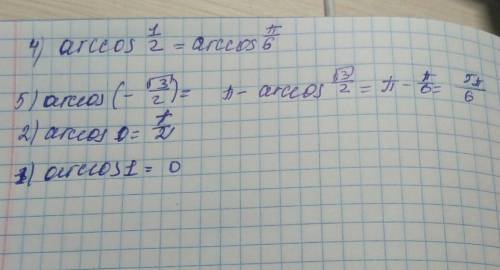 4) arccos 1/2 = arccos π/6
5) arcos (- √3/2) = π - arccos √3/2 = π - π/6 = 5π/6
2) arcos 0 = π/2
1) arccos 1 = 0